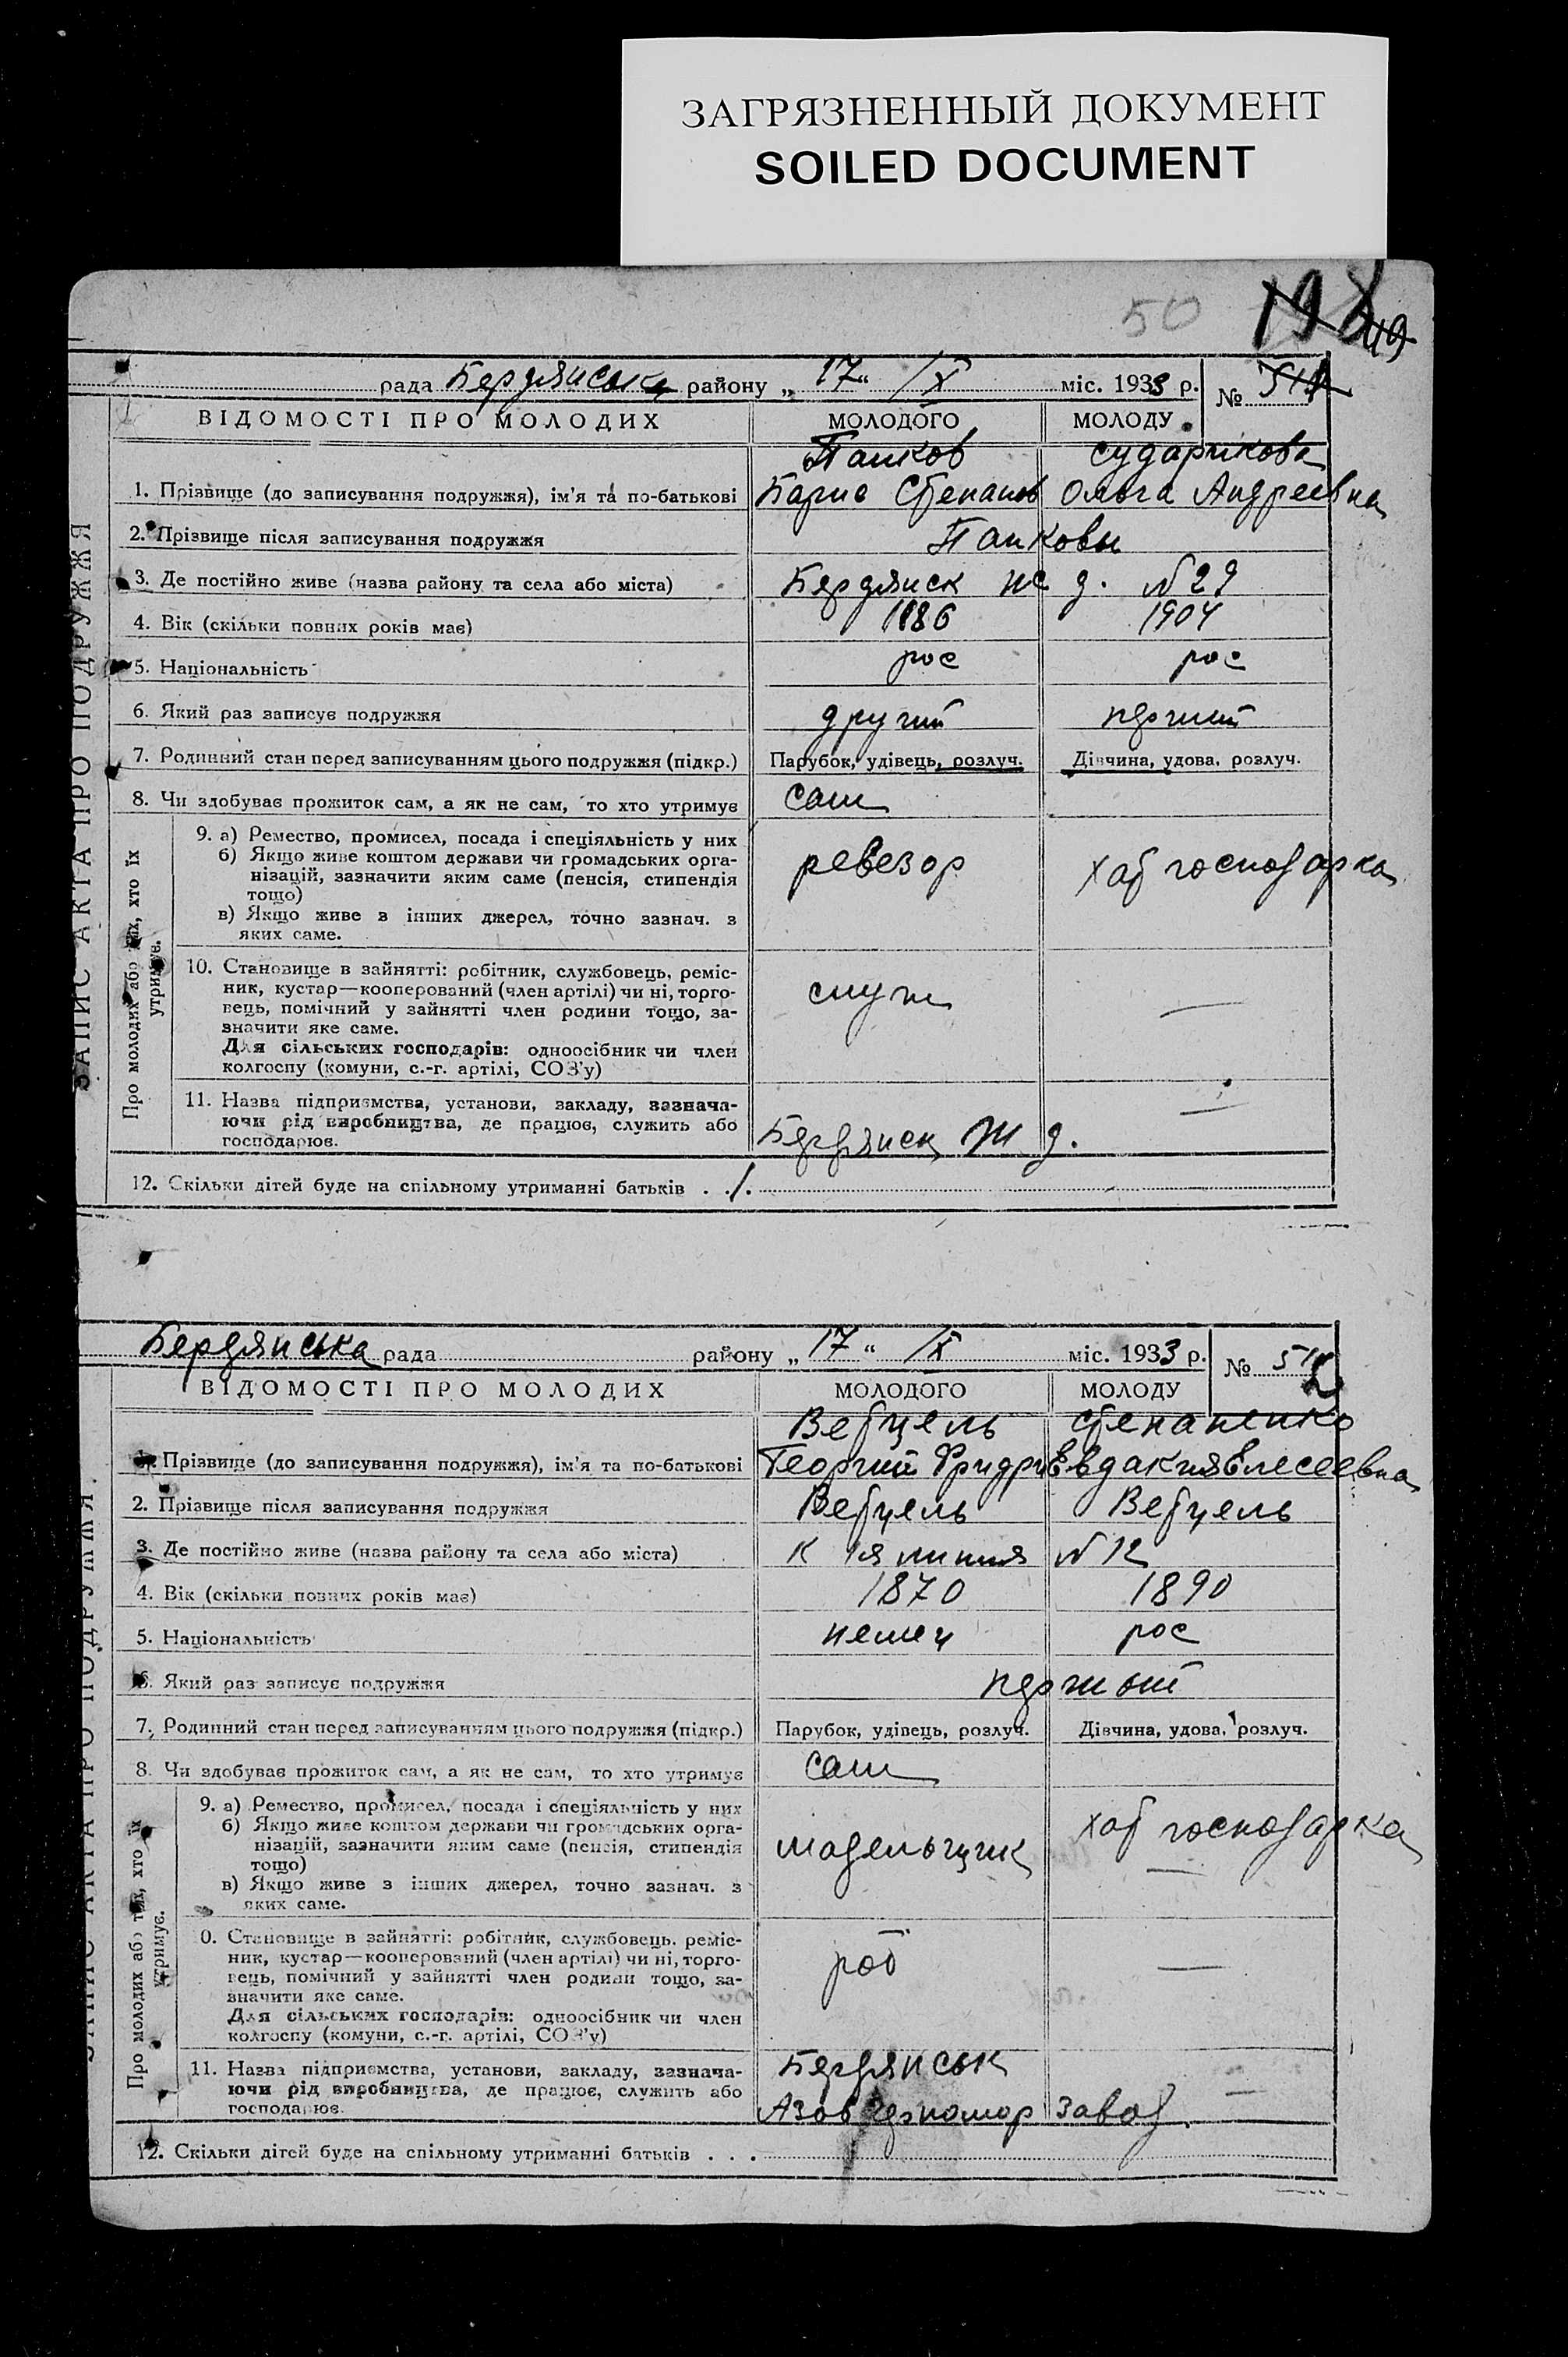 ЗАГРЯЗНЕННЫЙ ДОКУМЕНТ
SOILED DOCUMENT
50
рада Бердянська району „ 17 “ IX міс. 1933 р. №
ВІДОМОСТІ ПРО МОЛОДИХ МОЛОДОГО МОЛОДУ
Сударикова
1. Прізвище (до записування подружжя), ім'я та по-батькові Степанов Ольга Андреевна
2. Прізвище після записування подружжя
3. Де постійно живе (назва району та села або міста) Бердянск ж д. № 29
4. Вік (скільки повних років має) 1886 1904
5. Національність рос рос
6. Який раз записує подружжя другий перший
7. Родинний стан перед записуванням цього подружжя (підкр.) Парубок, удівець, розлуч. Дівчина, удова, розлуч.
8. Чи здобуває прожиток сам, а як не сам, то хто утримує сам
9. а) Ремество, промисел, посада і спеціяльність у них
б) Якщо живе коштом держави чи громадських орга-
нізацій, зазначити яким саме (пенсія, стипендія
тощо)
в) Якщо живе з інших джерел, точно зазнач. з
яких саме.
ревезор хат господарка
10. Становище в зайнятті: робітник, службовець, реміс-
ник, кустар—кооперований (член артілі) чи ні, торго-
вець, помічний у зайнятті член родини тощо, за-
значити яке саме.
Для сільських господарів: одноосібник чи член
колгоспу (комуни, с.-г. артілі, СОЗ'у)
служ —
11. Назва підприємства, установи, закладу, зазнача-
ючи рід виробництва, де працює, служить або
господарює.
Бердянск Ж д. —
12. Скільки дітей буде на спільному утриманні батьків . . 1.
ЗАПИС АКТА ПРО ПОДРУЖЖЯ
Про молодих або тих, хто їх
утримує.
Бердянська рада району „ 17 “ IX міс. 1933 р. № 512
ВІДОМОСТІ ПРО МОЛОДИХ МОЛОДОГО МОЛОДУ
Ветцель Степаненко
1. Прізвище (до записування подружжя), ім'я та по-батькові Георгий Фридри Евдакия Елесеевна
2. Прізвище після записування подружжя Ветцель Ветцель
3. Де постійно живе (назва району та села або міста) К 1я линия № 12
4. Вік (скільки повних років має) 1870 1890
5. Національність немец рос
6. Який раз записує подружжя
7. Родинний стан перед записуванням цього подружжя (підкр.) Парубок, удівець, розлуч. Дівчина, удова, розлуч.
8. Чи здобуває прожиток сам, а як не сам, то хто утримує сам
9. а) Ремество, промисел, посада і спеціяльність у них
б) Якщо живе коштом держави чи громадських орга-
нізацій, зазначити яким саме (пенсія, стипендія
тощо)
в) Якщо живе з інших джерел, точно зазнач. з
яких саме.
модельщик хат господарка
—
0. Становище в зайнятті: робітник, службовець, реміс-
ник, кустар—кооперований (член артілі) чи ні, торго-
вець, помічний у зайнятті член родини тощо, за-
значити яке саме.
Для сільських господарів: одноосібник чи член
колгоспу (комуни, с.-г. артілі, СОЗ'у)
роб —
11. Назва підприємства, установи, закладу, зазнача-
ючи рід виробництва, де працює, служить або
господарює.
Бердянськ —
Азов Черномор завод.
12. Скільки дітей буде на спільному утриманні батьків . . .
ЗАПИС АКТА ПРО ПОДРУЖЖЯ
Про молодих або тих, хто їх
утримує.